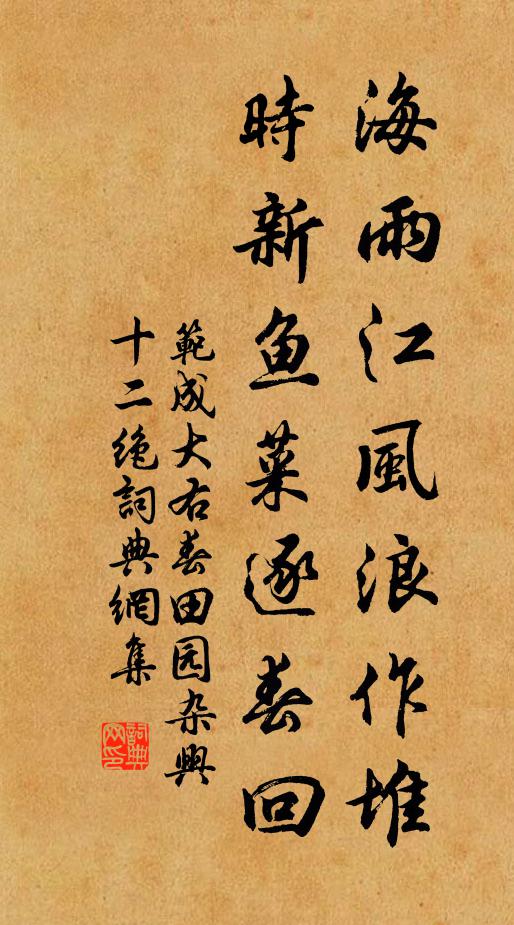 海雨江風浪作堆
時新鱼菜逐春回
範成大右春田园杂興
十二绝詞典網集
詞典網印